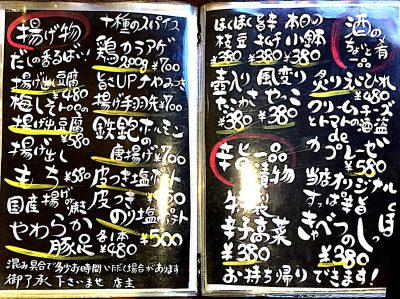 揚げ物
だしの香るばい!
揚げ出し豆腐
¥480
梅しその
揚げ出し豆腐
¥580
揚げ出し
もち ¥580
国産 揚げの焼き
やわらか
豚足 各1本 ¥480
十種のスパイス
鶏カラアゲ
200g ¥700
旨さUP↑やみつき
揚げ手羽先 ¥700
鉄鍋ホルモンの
唐揚げ ¥700
皮つき塩ポテト
¥450
皮つき
のり塩ポテト
¥500
混み具合で多少お時間いただく場合があります
御了承下さいませ 店主
酒の
ちょいと肴
ほくほく 旨辛 本日の
枝豆 キムチ 小鉢
¥380 ¥380 ¥380
壺入り 風変り 炙りえいひれ
たこわさ やっこ ¥480
¥380 ¥380
クリームチーズ
とトマトの酒盗
de
カプレーゼ
¥580
辛旨一品
自家製
辛子高菜
¥380
当店オリジナル
すっぱ辛旨
きゃべつのしっぽ
¥380
お持ち帰りできます!